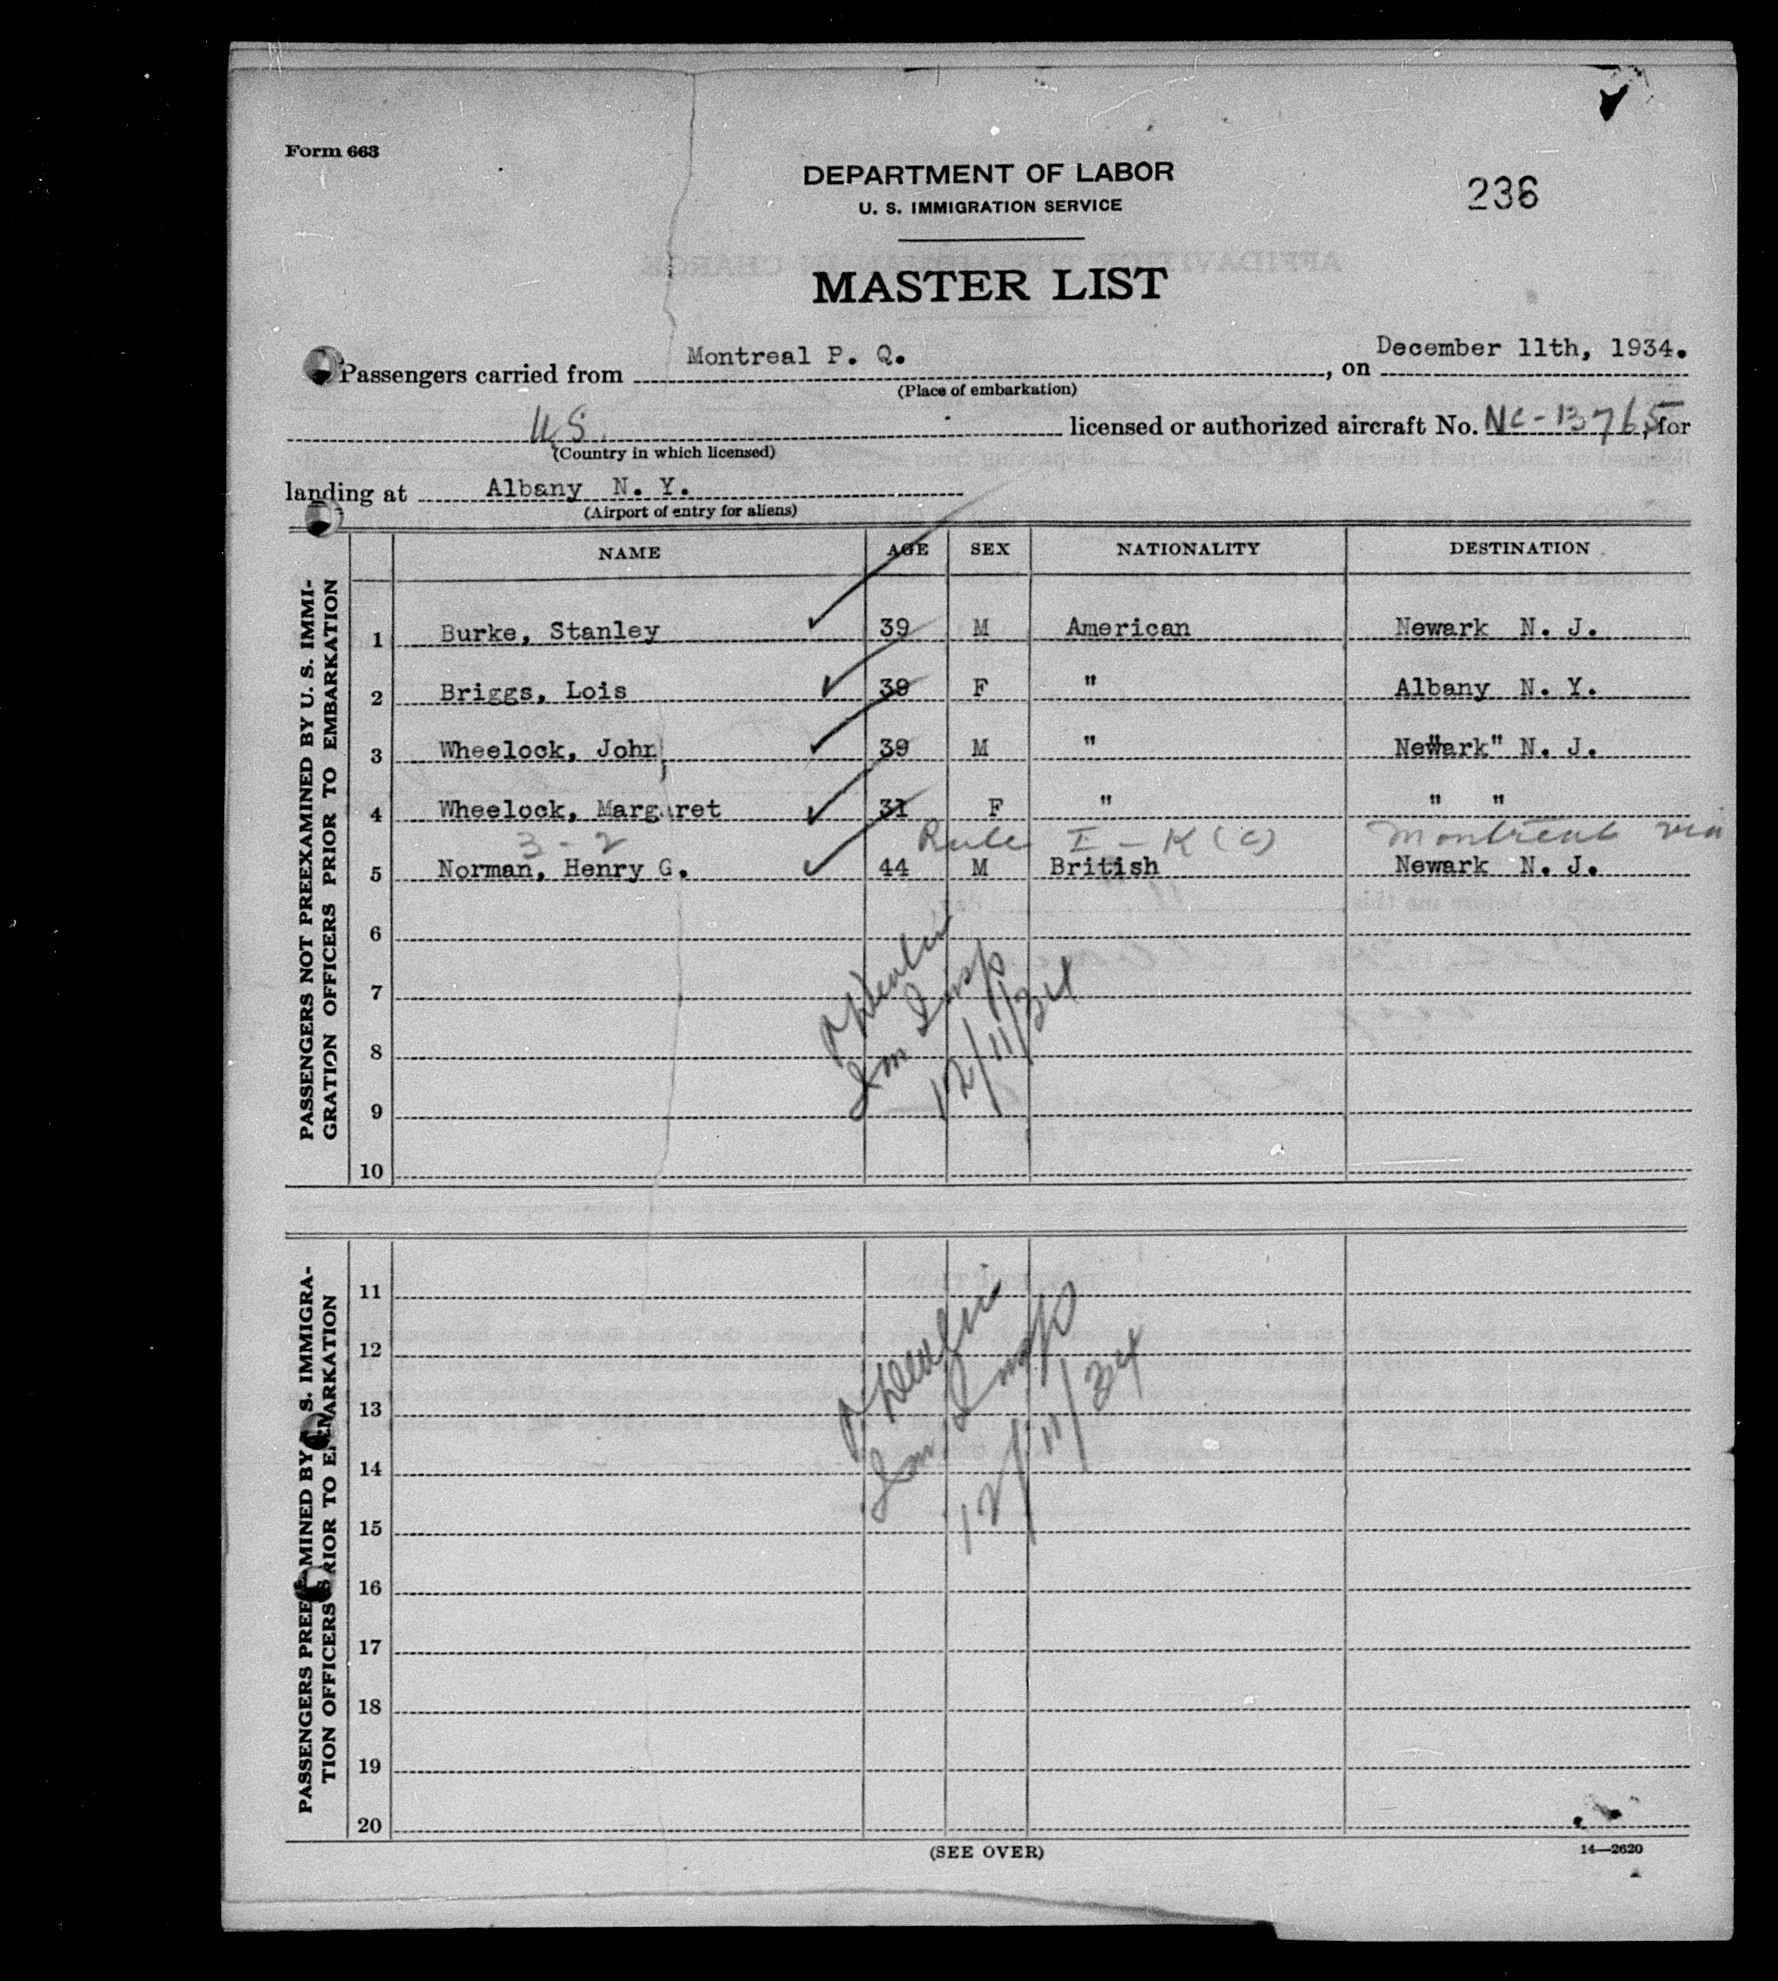 Form 663
DEPARTMENT OF LABOR
U. S. IMMIGRATION SERVICE
236
MASTER LIST
Passengers carried from Montreal P. Q., on December 11th, 1934.
(Place of embarkation)
U.S. licensed or authorized aircraft No. NC-13765, for
(Country in which licensed)
landing at Albany N. Y.
(Airport of entry for aliens)
NAME AGE SEX NATIONALITY DESTINATION
PASSENGERS NOT PREEXAMINED BY U. S. IMMI-
GRATION OFFICERS PRIOR TO EMBARKATION
1 Burke, Stanley 39 M American Newark N. J.
2 Briggs, Lois 39 F " Albany N. Y.
3 Wheelock, John 39 M " Newark" N. J.
4 Wheelock, Margaret 31 F " " "
3-2 Rule I-K(c) Montreal via
5 Norman, Henry G. 44 M British Newark N. J.
6
7
8
9
10
Imm Insp
12/11/34
PASSENGERS PREEXAMINED BY U. S. IMMIGRA-
TION OFFICERS PRIOR TO EMBARKATION
11
12
13
14
15
16
17
18
19
20
Imm Insp
12/11/34
(SEE OVER)
14—2620